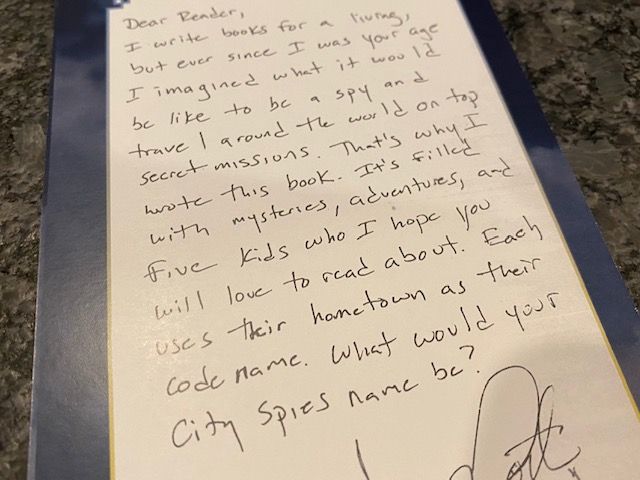 Dear Reader,
I write books for a living,
but ever since I was your age
I imagined what it would
be like to be a spy and
travel around the world on top
secret missions. That's why I
wrote this book. It's filled
with mysteries, adventures, and
five kids who I hope you
will love to read about. Each
uses their hometown as their
code name. What would your
City Spies name be?